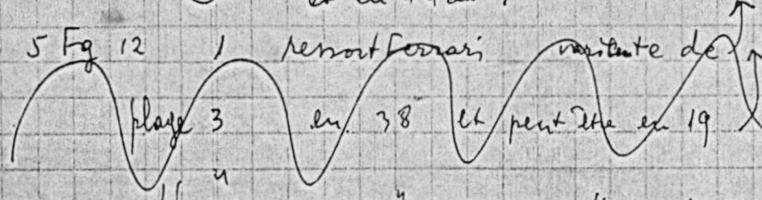 5 Fg 12 1 ressort Ferrari variante de
plage 3 en 38 et peut être en 19